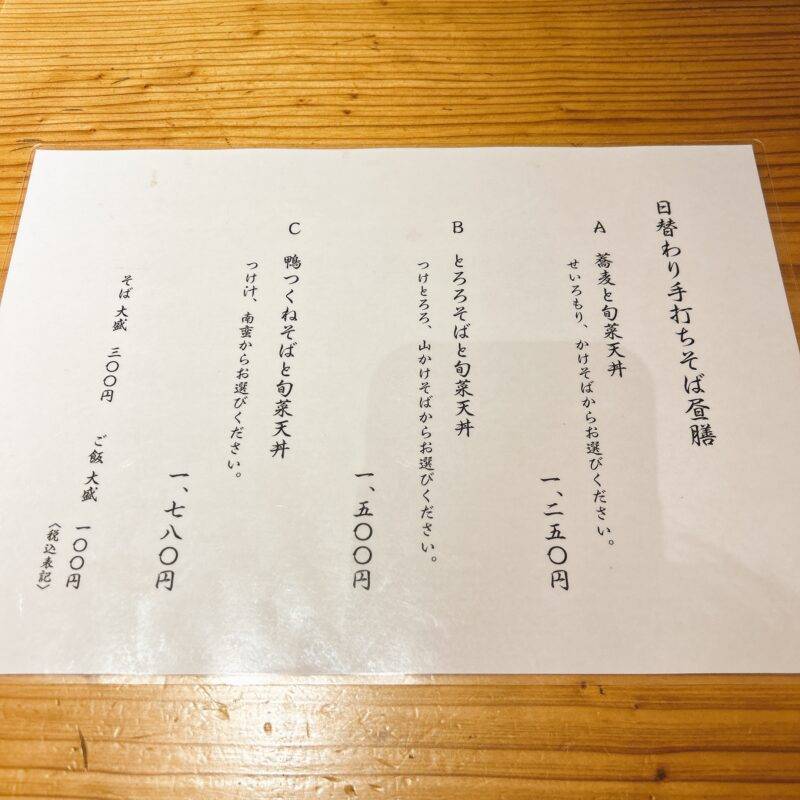 日替わり手打ちそば昼膳
A 蕎麦と旬菜天丼
せいろもり、かけそばからお選びください。
一、二五〇円
B とろろそばと旬菜天丼
つけとろろ、山かけそばからお選びください。
一、五〇〇円
C 鴨つくねそばと旬菜天丼
つけ汁、南蛮からお選びください。
一、七八〇円
そば 大盛 三〇〇円
ご飯 大盛 一〇〇円
〈税込表記〉